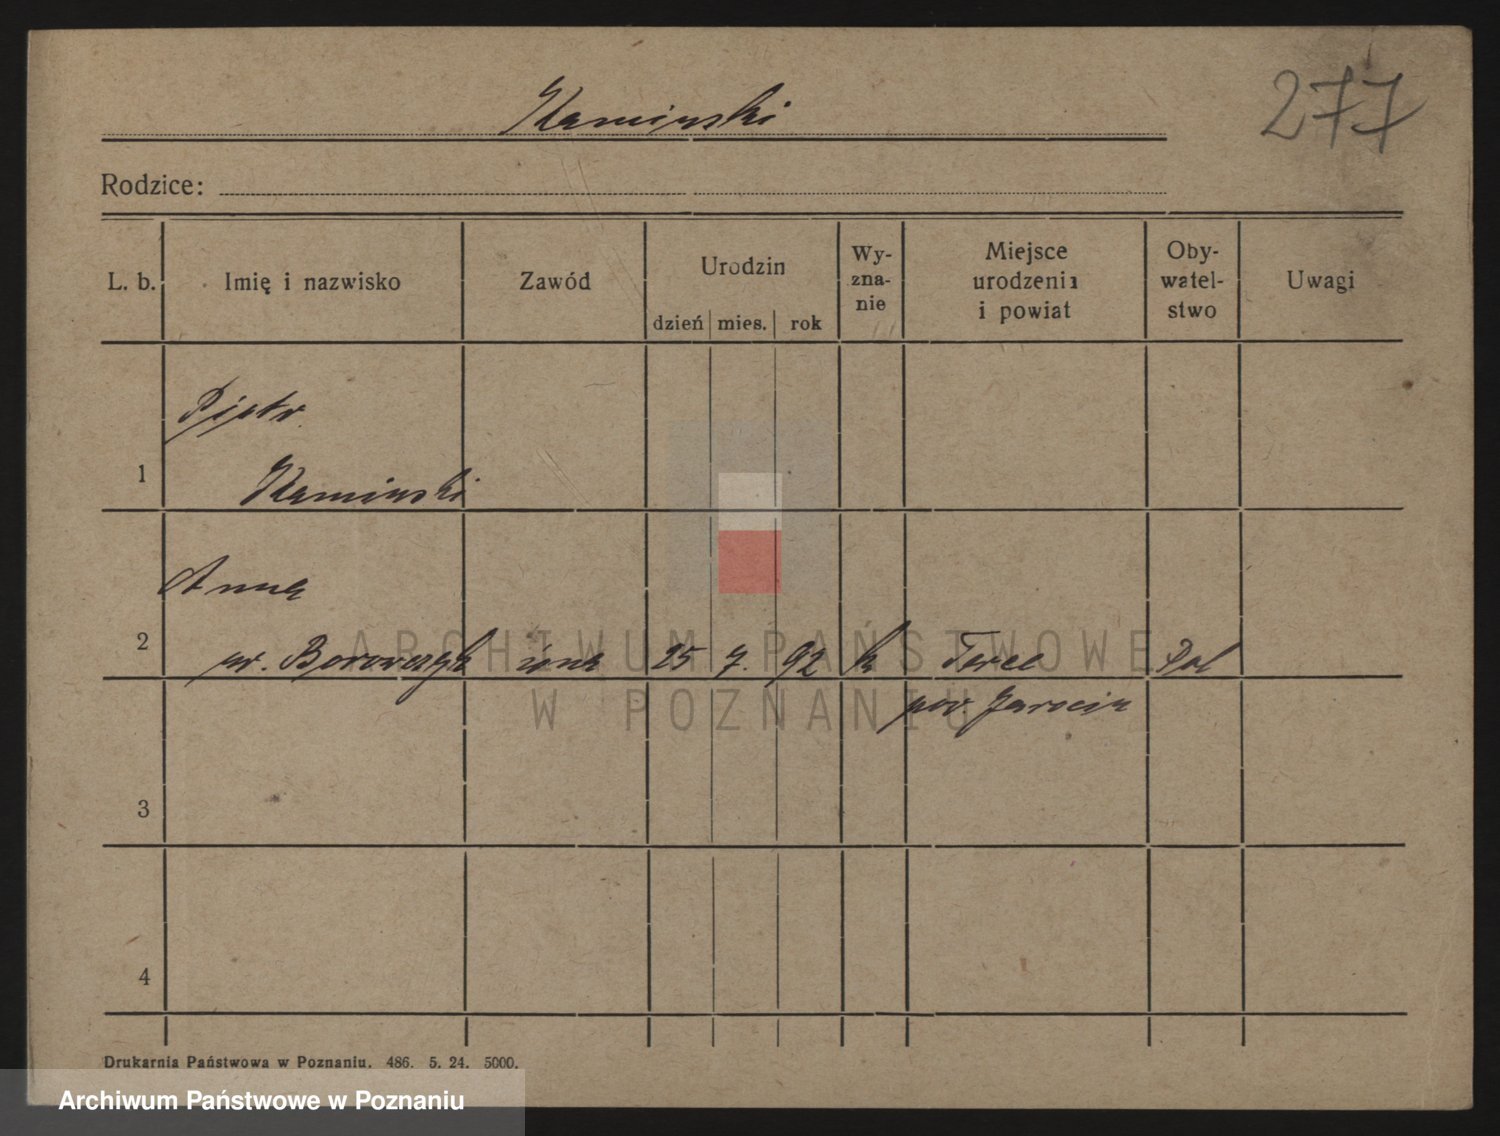 Kaminski
277
Rodzice:
L. b. Imię i nazwisko Zawód Urodzin dzień mies. rok Wy-zna-nie Miejsce urodzenia i powiat Oby-watel-stwo Uwagi
Piotr
1 Kaminski
Anna
2 ur. Borowczyk żona 25 7. 92 k Tarce Pol
pow. Jarocin
3
4
ARCHIWUM PAŃSTWOWE
W POZNANIU
Drukarnia Państwowa w Poznaniu. 486. 5. 24. 5000.
Archiwum Państwowe w Poznaniu